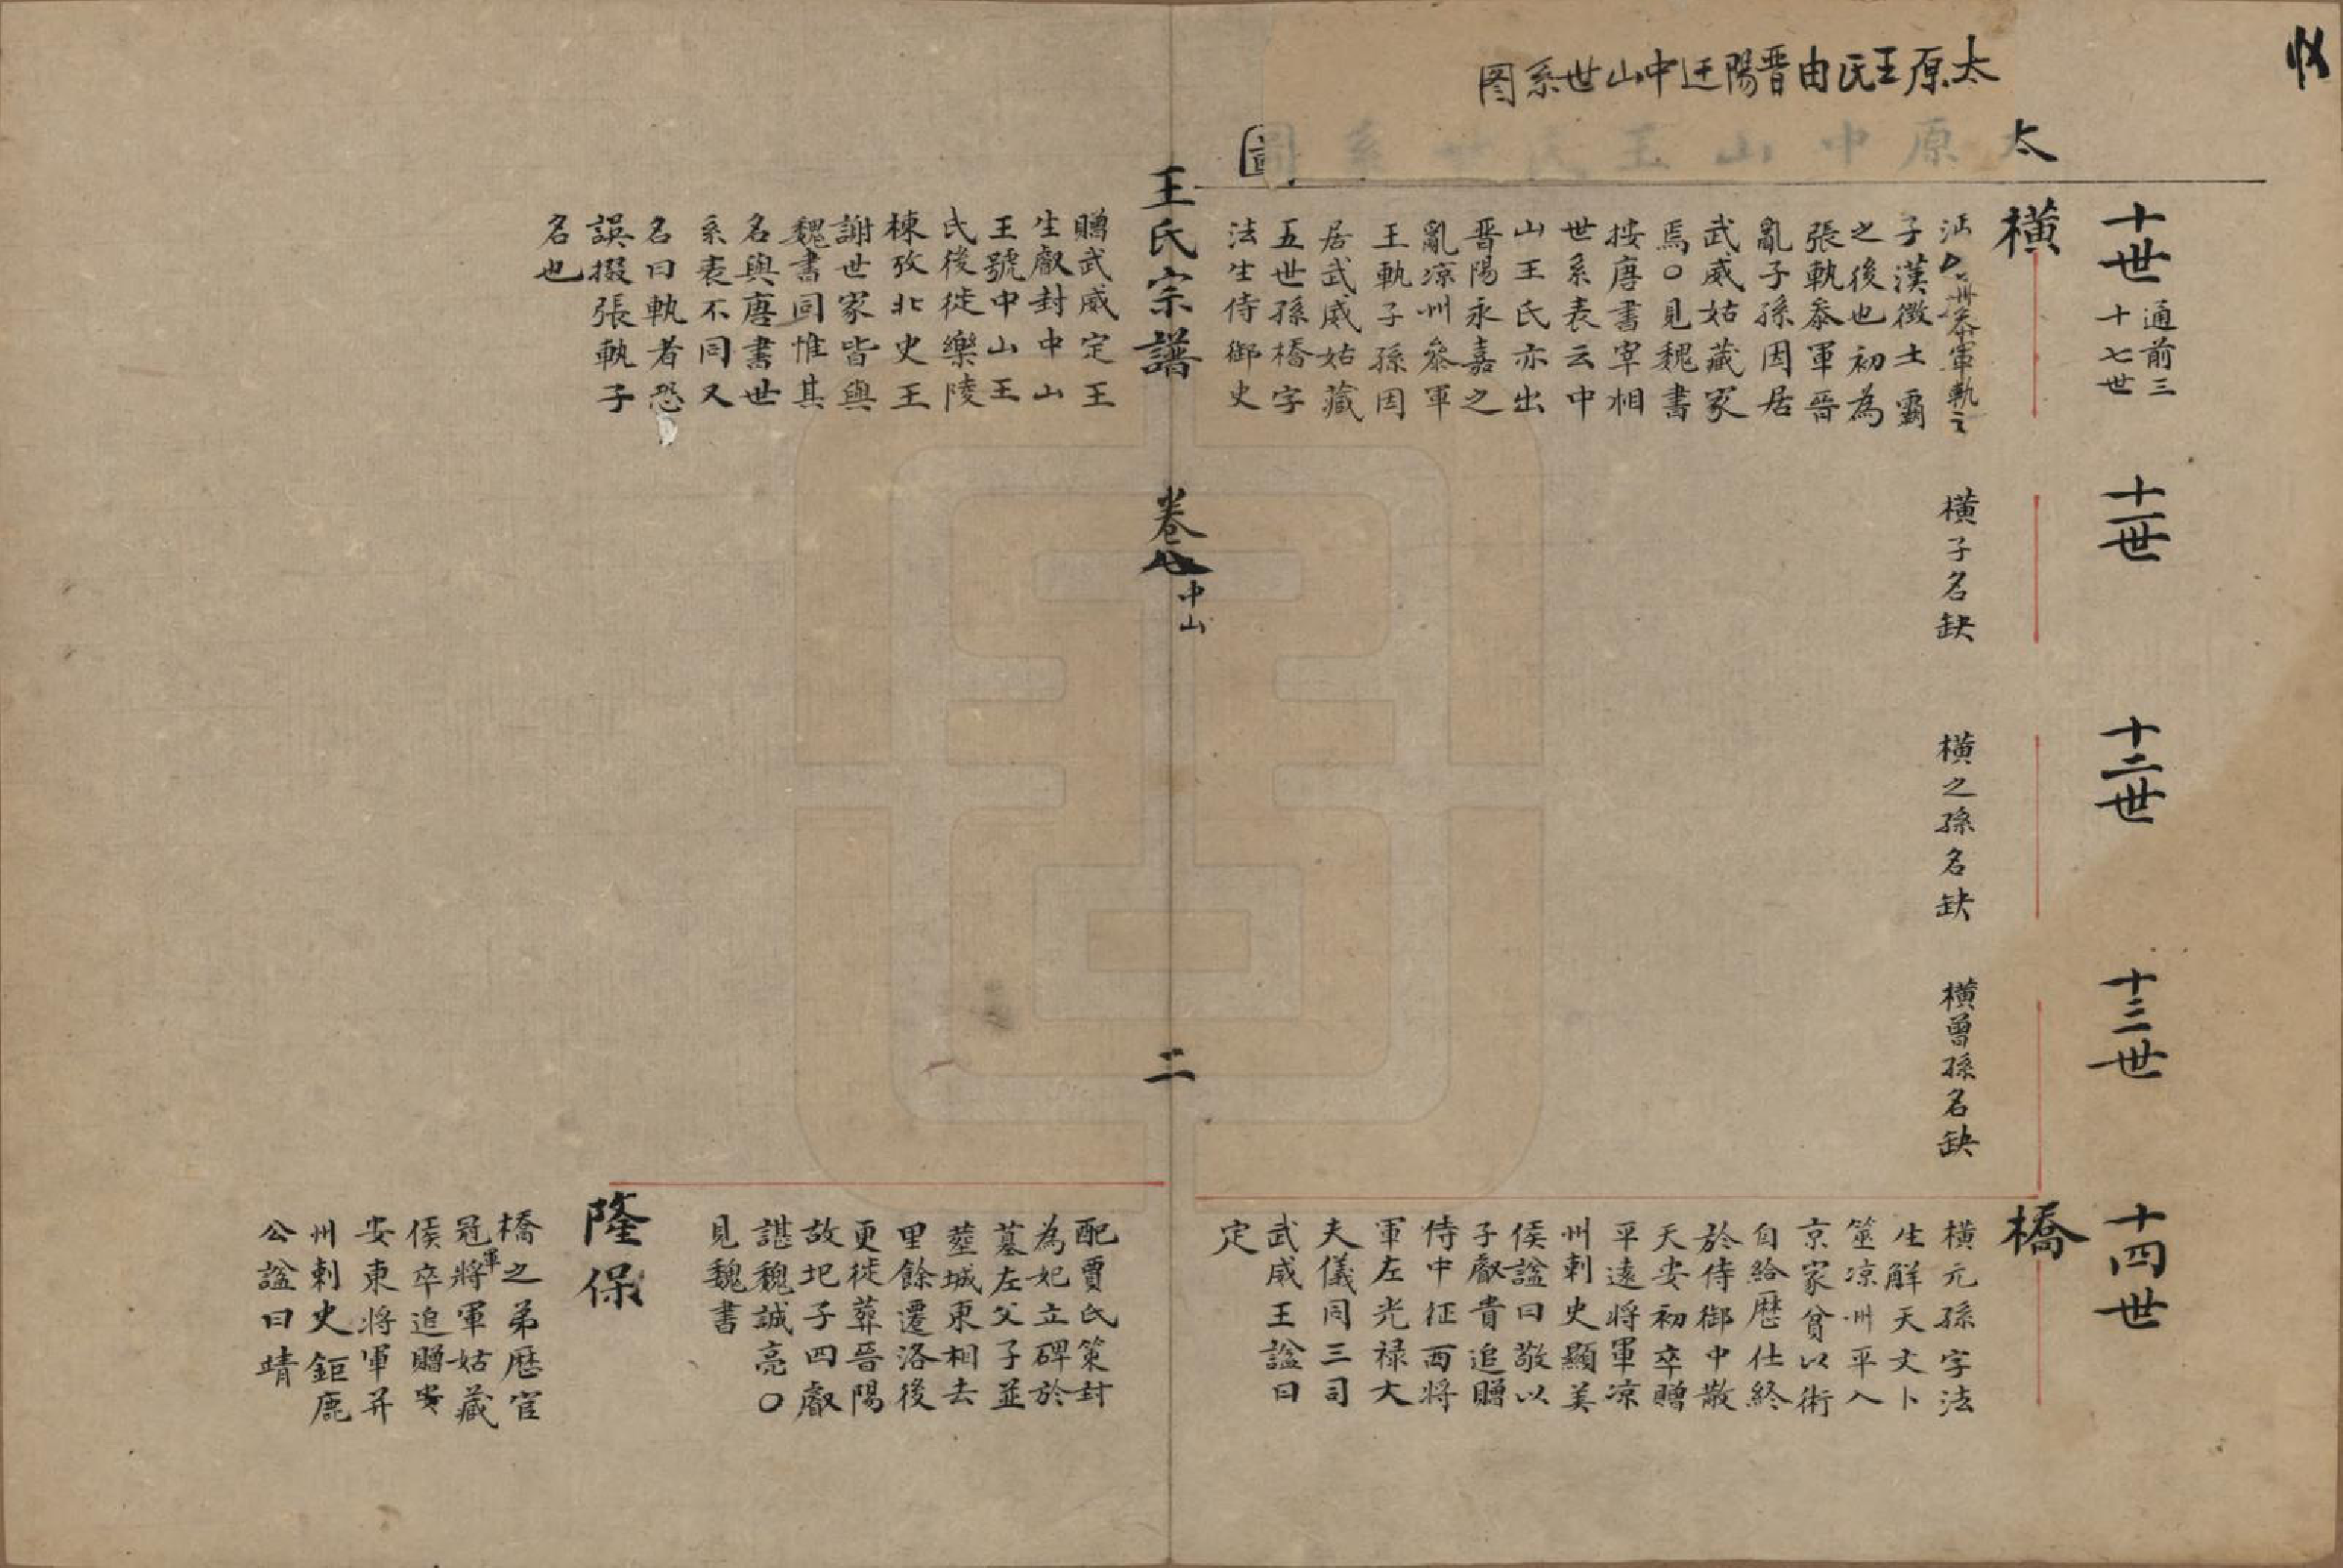 收
太原王氏由晋陽迁中山世系图
太原中山王氏世系圖
太
圖
十世
通前三
十七世
橫
子漢徵士霸
之後也初為
張軌叅軍晉
亂子孫因居
武威姑藏家
焉○見魏書
按唐書宰相
世系表云中
山王氏亦出
晋陽永嘉之
亂凉州叅軍
王軌子孫因
居武威姑藏
五世孫橋字
法生侍御史
王氏宗譜
卷
中山
二
贈武威定王
生叡封中山
王號中山王
氏後徙樂陵
棟攷北史王
謝世家皆與
魏書同惟其
名與唐書世
系表不同又
名曰軌者恐
誤掇張軌子
名也
十一世
橫子名缺
十二世
橫之孫名缺
十三世
橫曾孫名缺
十四世
橋
橫元孫字法
生解天文卜
筮凉州平入
京家貧以術
自給歷仕終
於侍御中散
天安初卒贈
平遠將軍凉
州刺史顯美
侯諡曰敬以
子叡貴追贈
侍中征西將
軍左光禄大
夫儀同三司
武威王諡曰
定
配賈氏策封
為妃立碑於
墓左父子並
塟城東相去
里餘遷洛後
更徙葬晉陽
故圯子四叡
諶魏誠亮○
見魏書
隆保
橋之弟歷官
冠軍將軍姑藏
侯卒追贈安
安東將軍并
州刺史鉅鹿
公諡曰靖